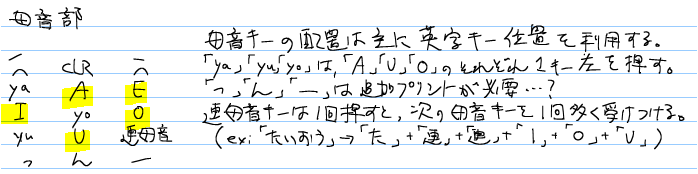 母音部
母音キーの配置は主に英字キー位置を利用する。
⌒ CLR ⌒ 「ya」「yu」「yo」は、「A」「U」「O」のそれぞれ1キー左を押す。
ya A E 「っ」「ん」「ー」は追加プリントが必要…?
I yo O 連母音キーは1回押すと、次の母音キーを1回多く受けつける。
yu U 連母音 (ex:「たいおう」→「た」+「連」+「連」+「I」+「O」+「U」)
っ ん ー